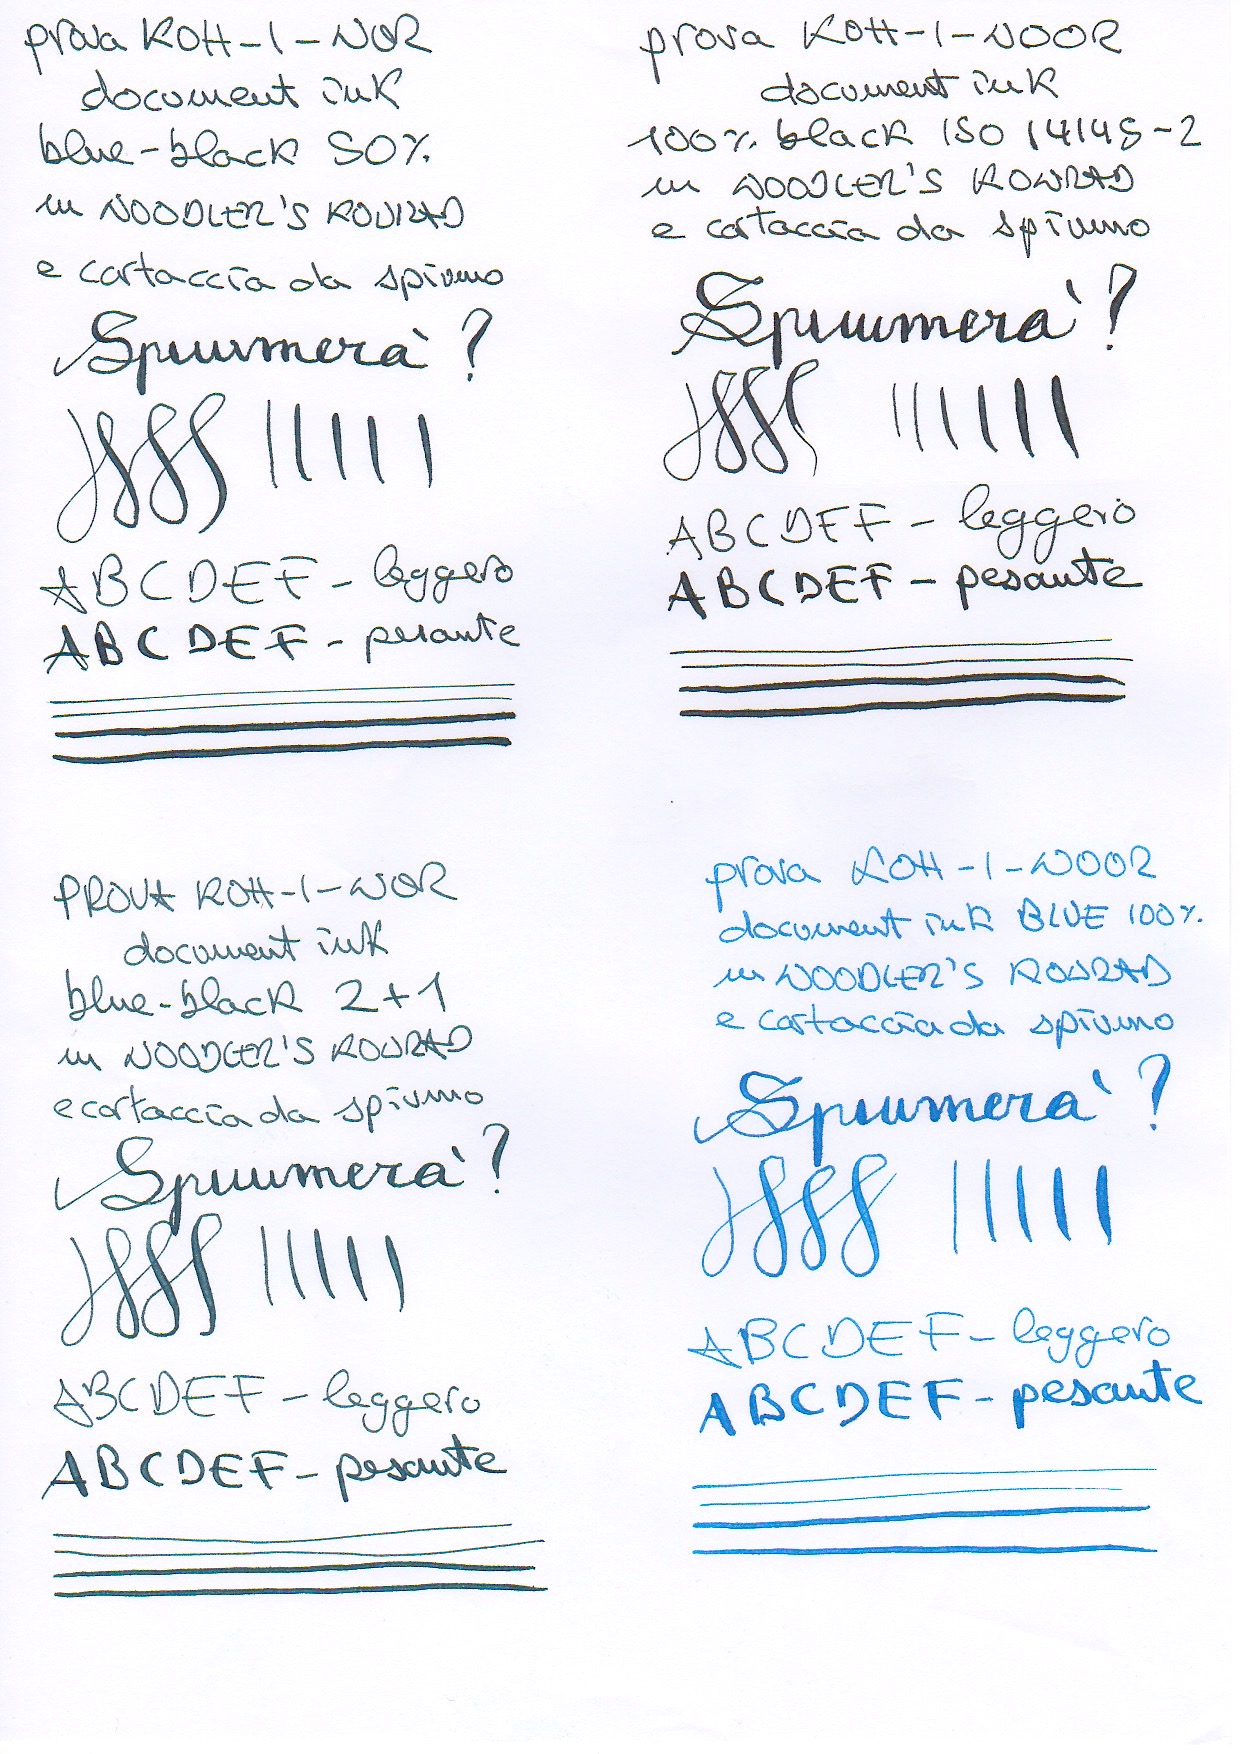 prova KOH-I-NOR
document ink
blue-black 50%
in NOODLER'S KONRAD
e cartaccia da spiumo
Spiuumerà?
ABCDEF - leggero
ABCDEF - pesante
prova KOH-I-NOOR
document ink
100% black ISO 14145-2
in NOODLER'S KONRAD
e cartaccia da spiumo
Spiuumerà?
ABCDEF - leggero
ABCDEF - pesante
PROVA KOH-I-NOR
document ink
blue-black 2+1
in NOODLER'S KONRAD
e cartaccia da spiumo
Spiuumerà?
ABCDEF - leggero
ABCDEF - pesante
prova KOH-I-NOOR
document ink BLUE 100%
in NOODLER'S KONRAD
e cartaccia da spiumo
Spiuumerà?
ABCDEF - leggero
ABCDEF - pesante